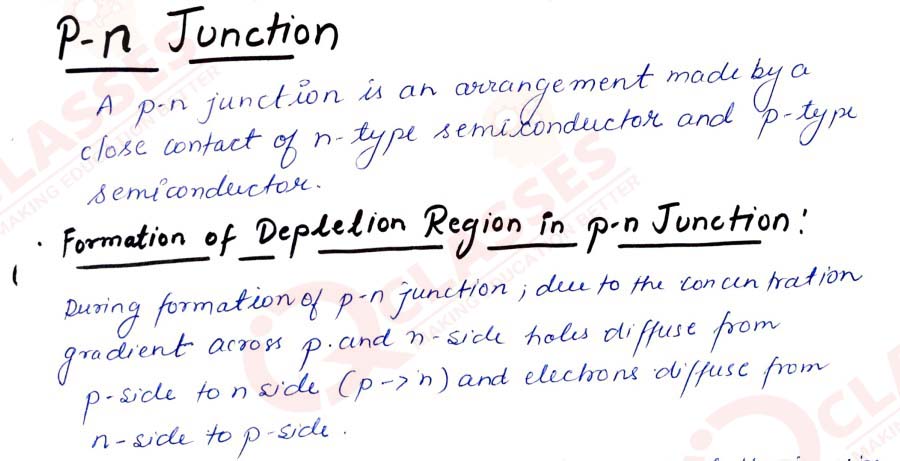 P-n Junction
A p-n junction is an arrangement made by a
close contact of n-type semiconductor and p-type
semiconductor.
· Formation of Depletion Region in p-n Junction:
During formation of p-n junction, due to the concentration
gradient across p- and n-side holes diffuse from
p-side to n side (p->n) and electrons diffuse from
n-side to p-side.
CLASSES
MAKING EDUCATION BETTER